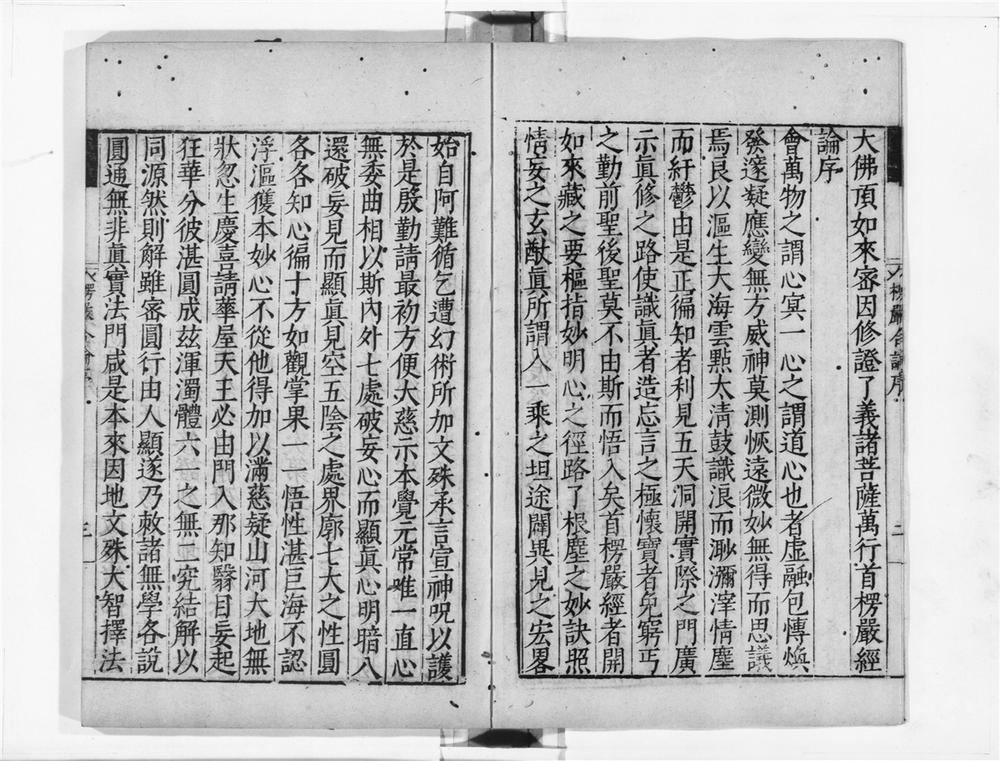 大佛頂如來密因修證了義諸菩薩萬行首楞嚴經
論序
會萬物之謂心冥一心之謂道心也者虛融包慱煥
發邃疑應變無方威神莫測恢遠微妙無得而思議
焉良以漚生大海雲點太清鼓識浪而渺瀰滓情塵
而紆鬱由是正徧知者利見五天洞開實際之門廣
示真修之路使識真者造忘言之極懷寶者免窮丐
之勤前聖後聖莫不由斯而悟入矣首楞嚴經者開
如來藏之要樞指妙明心之徑路了根塵之妙訣照
情妄之玄猷真所謂入一乘之坦途闢異見之宏畧
楞嚴合論序
二
始自阿難循乞遭幻術所加文殊承言宣神呪以護
於是殷勤請最初方便大慈示本覺元常唯一直心
無委曲相以斯內外七處破妄心而顯真心明暗八
還破妄見而顯真見空五陰之處界廓七大之性圓
各各知心徧十方如觀掌果一一悟性湛巨海不認
浮漚獲本妙心不從他得加以滿慈疑山河大地無
狀忽生慶喜請華屋天王必由門入那知翳目妄起
狂華分彼湛圓成茲渾濁體六一之無
究結解以
同源然則解雖審圓行由人顯遂乃敕諸無學各說
圓通無非真實法門咸是本來因地文殊大智擇法
楞嚴合論序
三